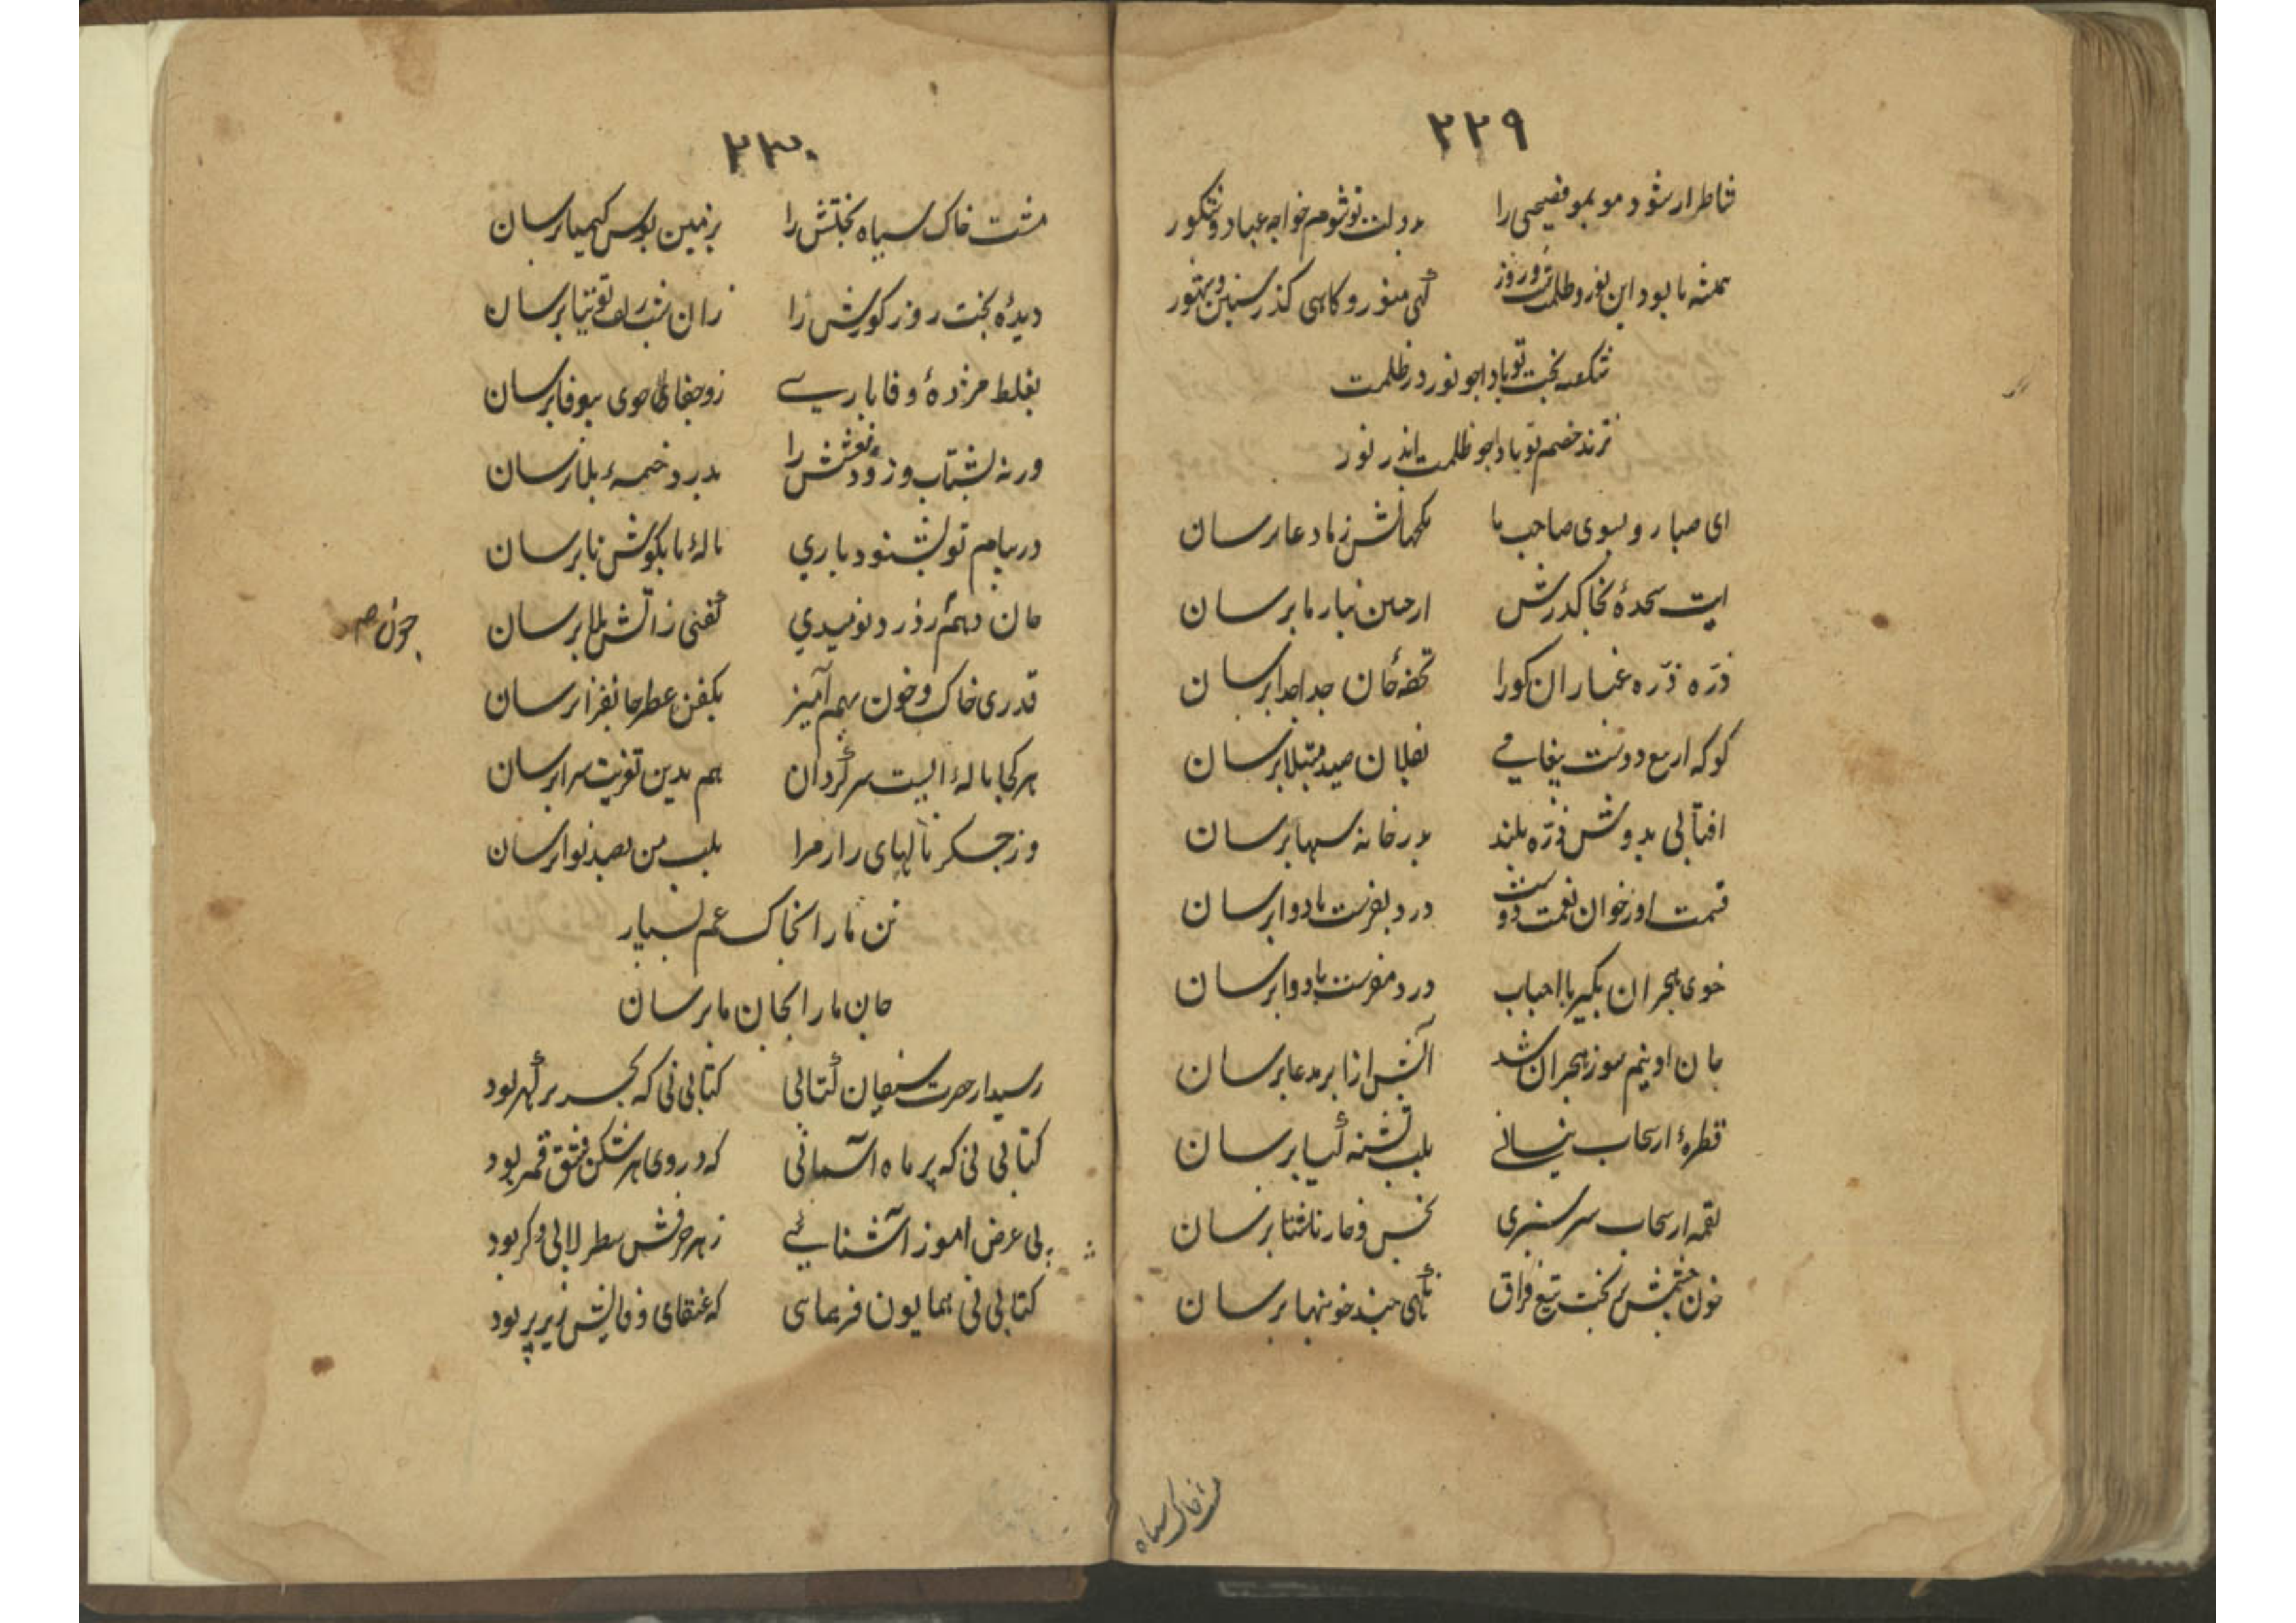 ۲۲۹
نثاطرار شود مو بمو فصیحی را بدولت تو شوم خواجه عباد و شکور
همیشه تا بود این نور و ظلمت شب و روز گهی منور و کاهی کذر سنین و شهور
شکفته بخت تو بادا چو نور در ظلمت
نژند خصم تو بادا چو ظلمت اندر نور
ای صبا رو بسوی صاحب ما نکهاتش ز ما دعا برسان
سجدهٔ بخاکدرش از جبین نیاز ما برسان
ذرّه ذرّه غبار ان کو را تحفهٔ جان جدا جدا برسان
کو که از تیغ دوست پیغامی بفلان صید مبتلا برسان
افتابی بدوش ذرّه بلند بدر خانه سها برسان
قسمت او ز خوان نعمت دوست درد بفرست یا دوا برسان
خوی هجران بکیر با احباب درد مفرست یا دوا برسان
جان او نیم سوز هجران شد آتش از ما بر مدعا برسان
قطرهٔ از سحاب نیسانی بلب تشنه کیا برسان
لقمه از سحاب سرسبزی بخس و خار ناشتا برسان
خون چشمش بریخت تیغ فراق نکهی چند خونبها برسان
مشت خاک سیاه
۲۳۰
مشت خاک سیاه بختش را بزمین بوس کیمیا برسان
دیدهٔ بخت روز کورش را زان شب زلف توتیا برسان
بغلط مژدهٔ وفا باری زو جفای بجوی بیوفا برسان
ورنه بشتاب و زود نعشش را بدر دخمهٔ بلا برسان
در پیام تو بشنود باری نالهٔ ما بکوش ما برسان
جان دهم در درد نومیدی کفنی ز آتش بلا برسان
چون دهم
قدری خاک و خون بهم آمیز بکفن عطر جانفزا برسان
هر کجا نالهٔ ایست سرکردان هم بدین تعزیت سرا برسان
وز جسکر نالهای زار مرا بلب من بصد نوا برسان
تن ما را بخاک غم بسپار
جان ما را بجان ما برسان
رسید از حضرت سنجان کتابی کتابی نی که بحر پر کهر بود
کتابی نی که پر ماه آسمانی که در وی هر شکن شق قمر بود
پی عرض اموز آشنائی ز هر حرفش سطر لابی دکر بود
کتابی نی همایون فر همای که عنقای وفایش زیر پر بود